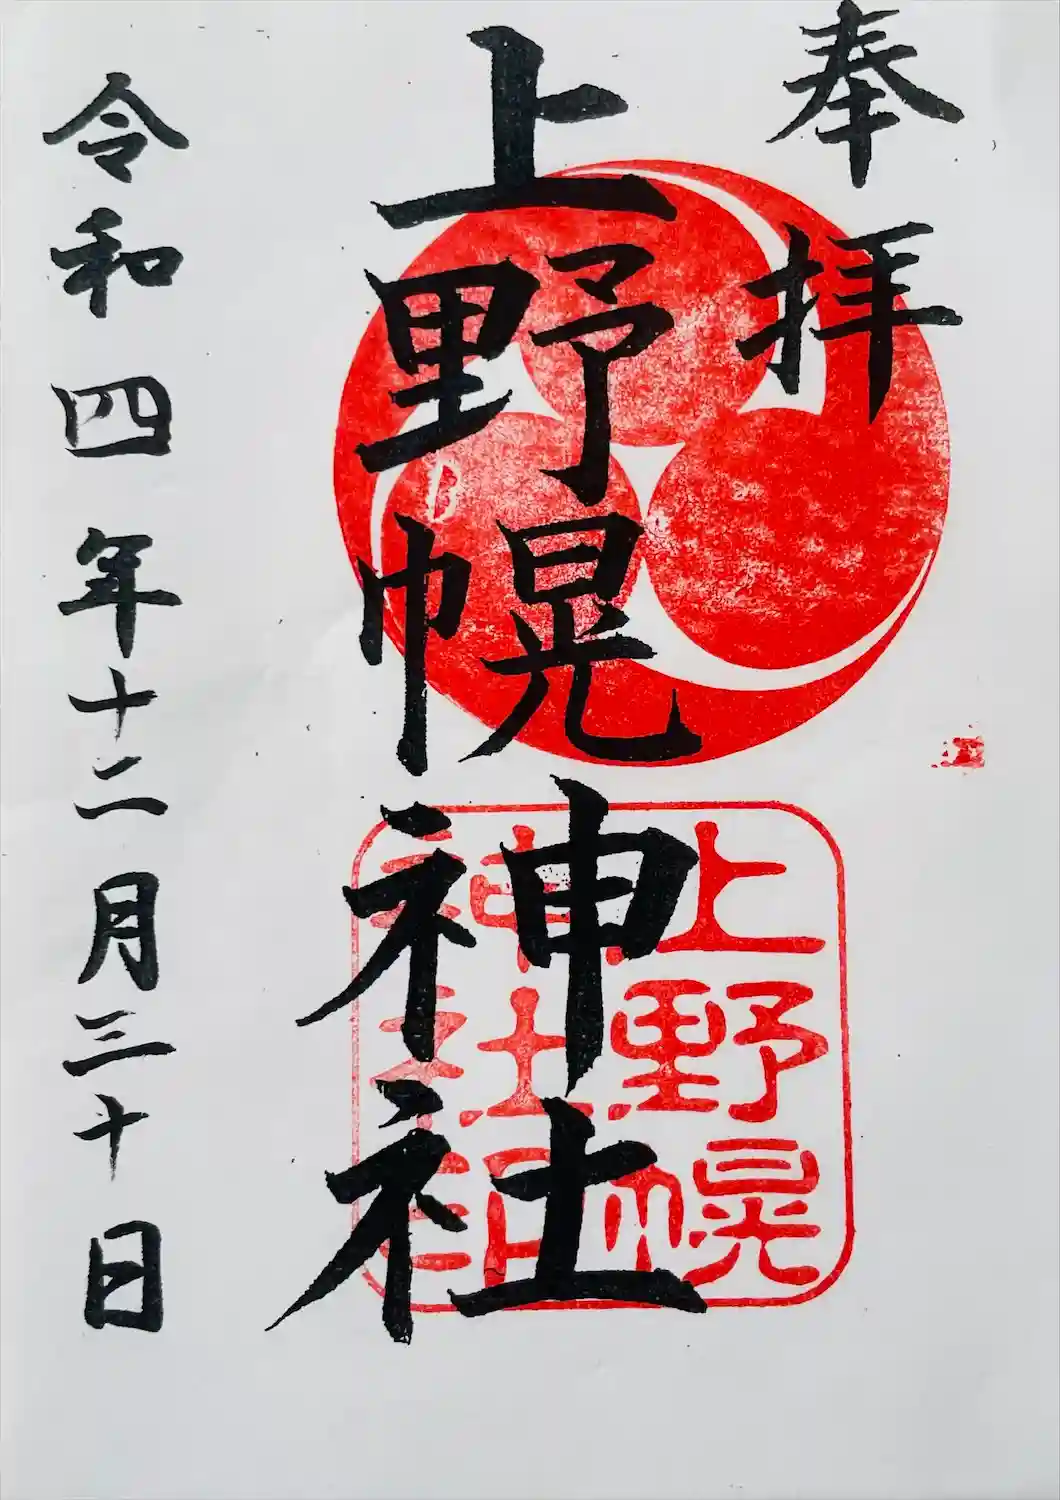 奉拝
上野幌神社
上野幌
神社
令和四年十二月三十日